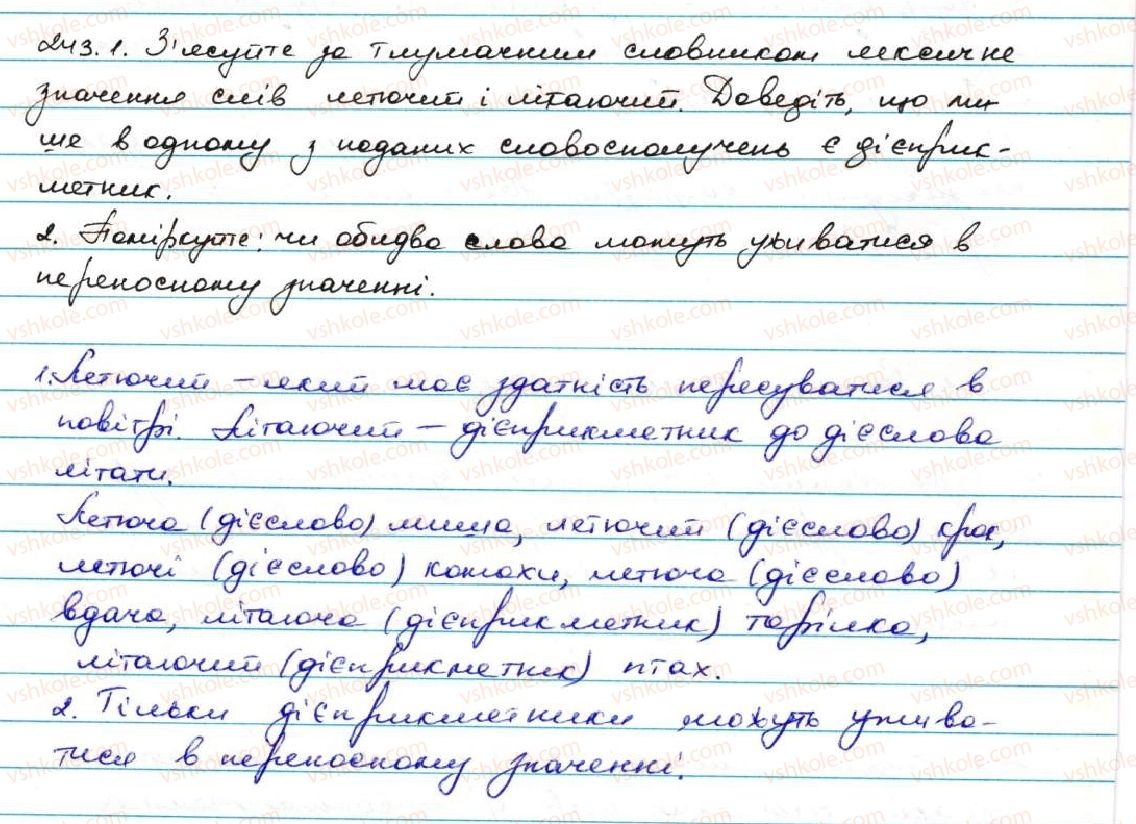 243. 1. З'ясуйте за тлумачним словником лексичне
значення слів летючий і літаючий. Доведіть, що ли
ше в одному з поданих словосполучень є дієприк-
метник.
2. Поміркуйте: чи обидва слова можуть уживатися в
переносному значенні.
1. Летючий – який має здатність пересуватися в
повітрі. Літаючий – дієприкметник до дієслова
літати.
Летюча (дієслово) миша, летючий (дієслово) крок,
летючі (дієслово) комахи, летюча (дієслово)
вдача, літаюча (дієприкметник) тарілка,
літаючий (дієприкметник) птах.
2. Тільки дієприкметники можуть ужива-
тися в переносному значенні.